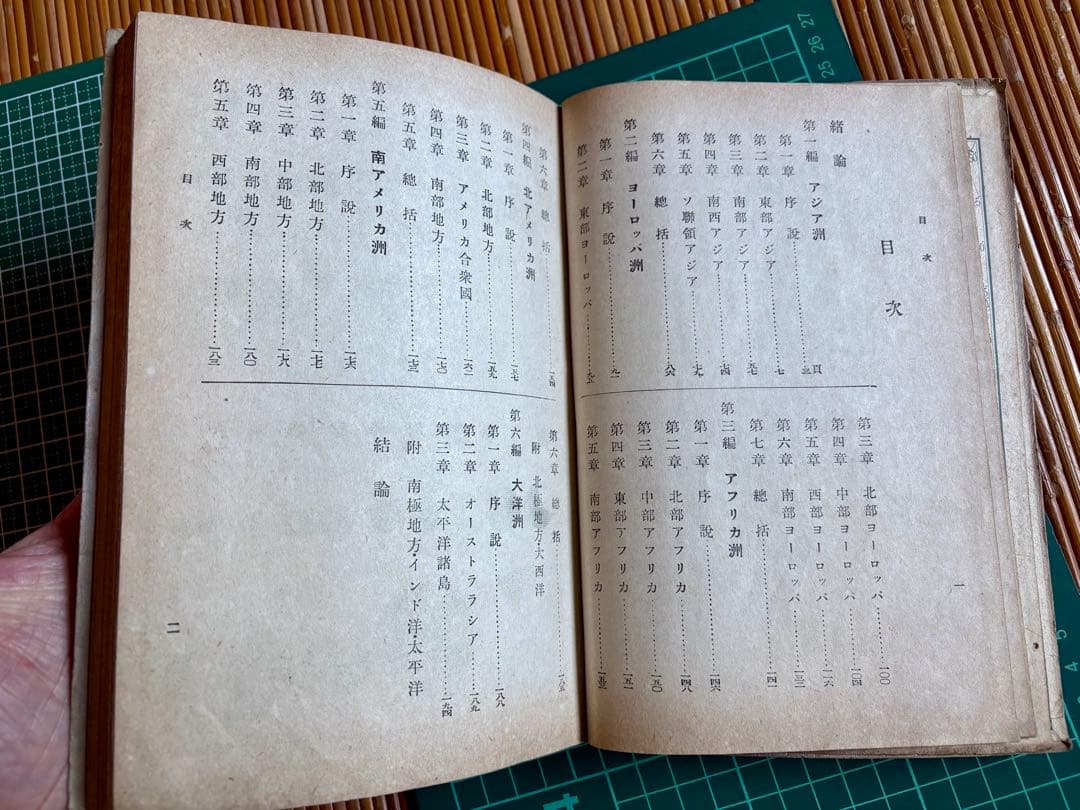 目次
目 次
緒論
第一編 アジア洲
第一章 序說
第二章 東部アジア……七
第三章 南部アジア
第四章 南西アジア
第五章 ソ聯領アジア
第六章 總括
第二編 ヨーロッパ洲
第一章 序說……九一
第二章 東部ヨーロッパ
第三章 北部ヨーロッパ……一〇〇
第四章 中部ヨーロッパ……一〇四
第五章 西部ヨーロッパ……一一六
第六章 南部ヨーロッパ……一三二
第七章 總括……一四一
第三編 アフリカ洲
第一章 序說……一四六
第二章 北部アフリカ……一四八
第三章 中部アフリカ……一五〇
第四章 東部アフリカ……一五一
第五章 南部アフリカ……一五三
一
第六章 總括……一五四
第四編 北アメリカ洲
第一章 序說……一五七
第二章 北部地方……一五九
第三章 アメリカ合衆國……一六二
第四章 南部地方……一七〇
第五章 總括……一七三
第五編 南アメリカ洲
第一章 序說……一七六
第二章 北部地方……一七七
第三章 中部地方……一七八
第四章 南部地方……一八〇
第五章 西部地方……一八三
目次
第六章 總括
附 北極地方・大西洋
第六編 大洋洲
第一章 序說……一八八
第二章 オーストララシア……一八九
第三章 太平洋諸島……一九四
附 南極地方・インド洋・太平洋
結論
二
25 26 27